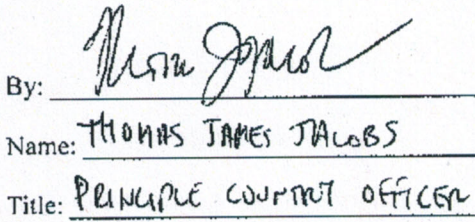 By:
Name: THOMAS JAMES JACOBS
Title: PRINCIPLE COUNTRY OFFICER